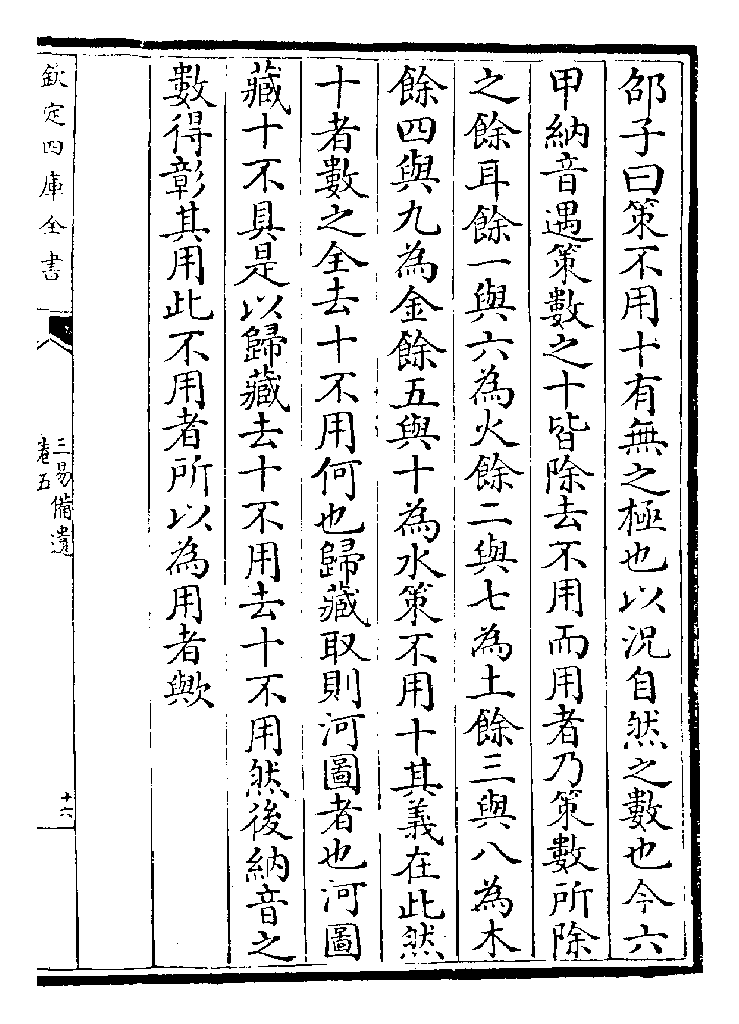 邵子曰策不用十有無之極也以況自然之數也今六
甲納音遇策數之十皆除去不用而用者乃策數所除
之餘耳餘一與六為火餘二與七為土餘三與八為木
餘四與九為金餘五與十為水策不用十其義在此然
十者數之全去十不用何也歸藏取則河圖者也河圖
藏十不具是以歸藏去十不用去十不用然後納音之
數得彰其用此不用者所以為用者歟
欽定四庫全書
三易備遺
卷五
十六